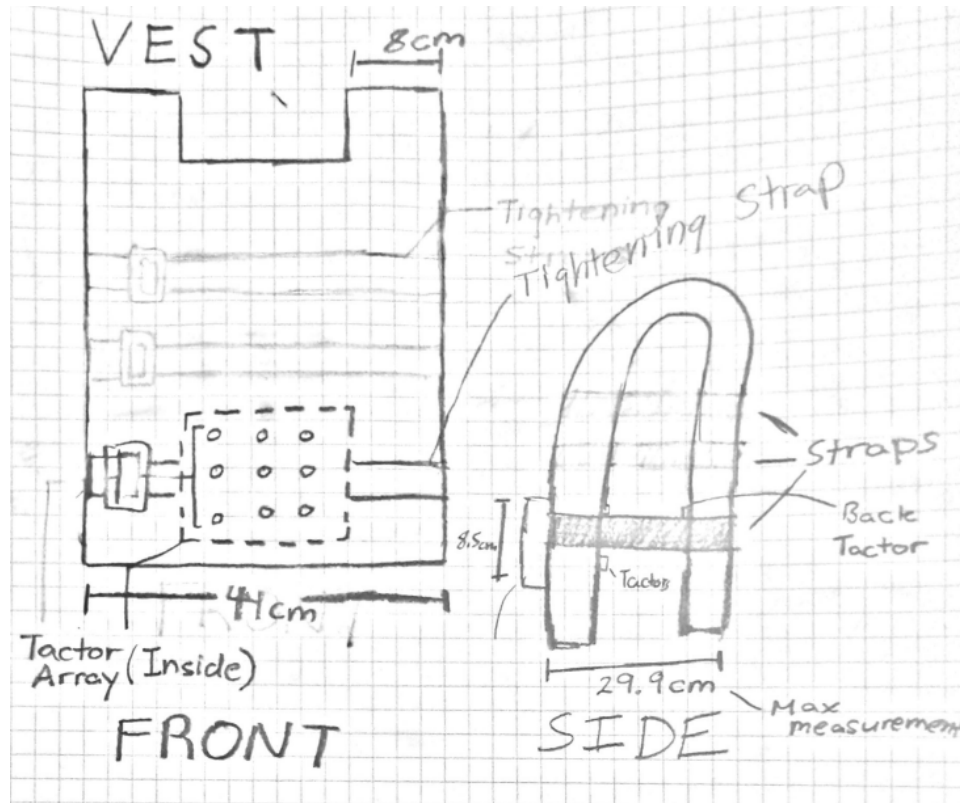 VEST
8cm
Tightening
Tightenring Strap
Straps
Back
Tactor
8.5cm
Tactors
44cm
Tactor
Array (Inside)
29.9cm
Max
measurement
FRONT
SIDE